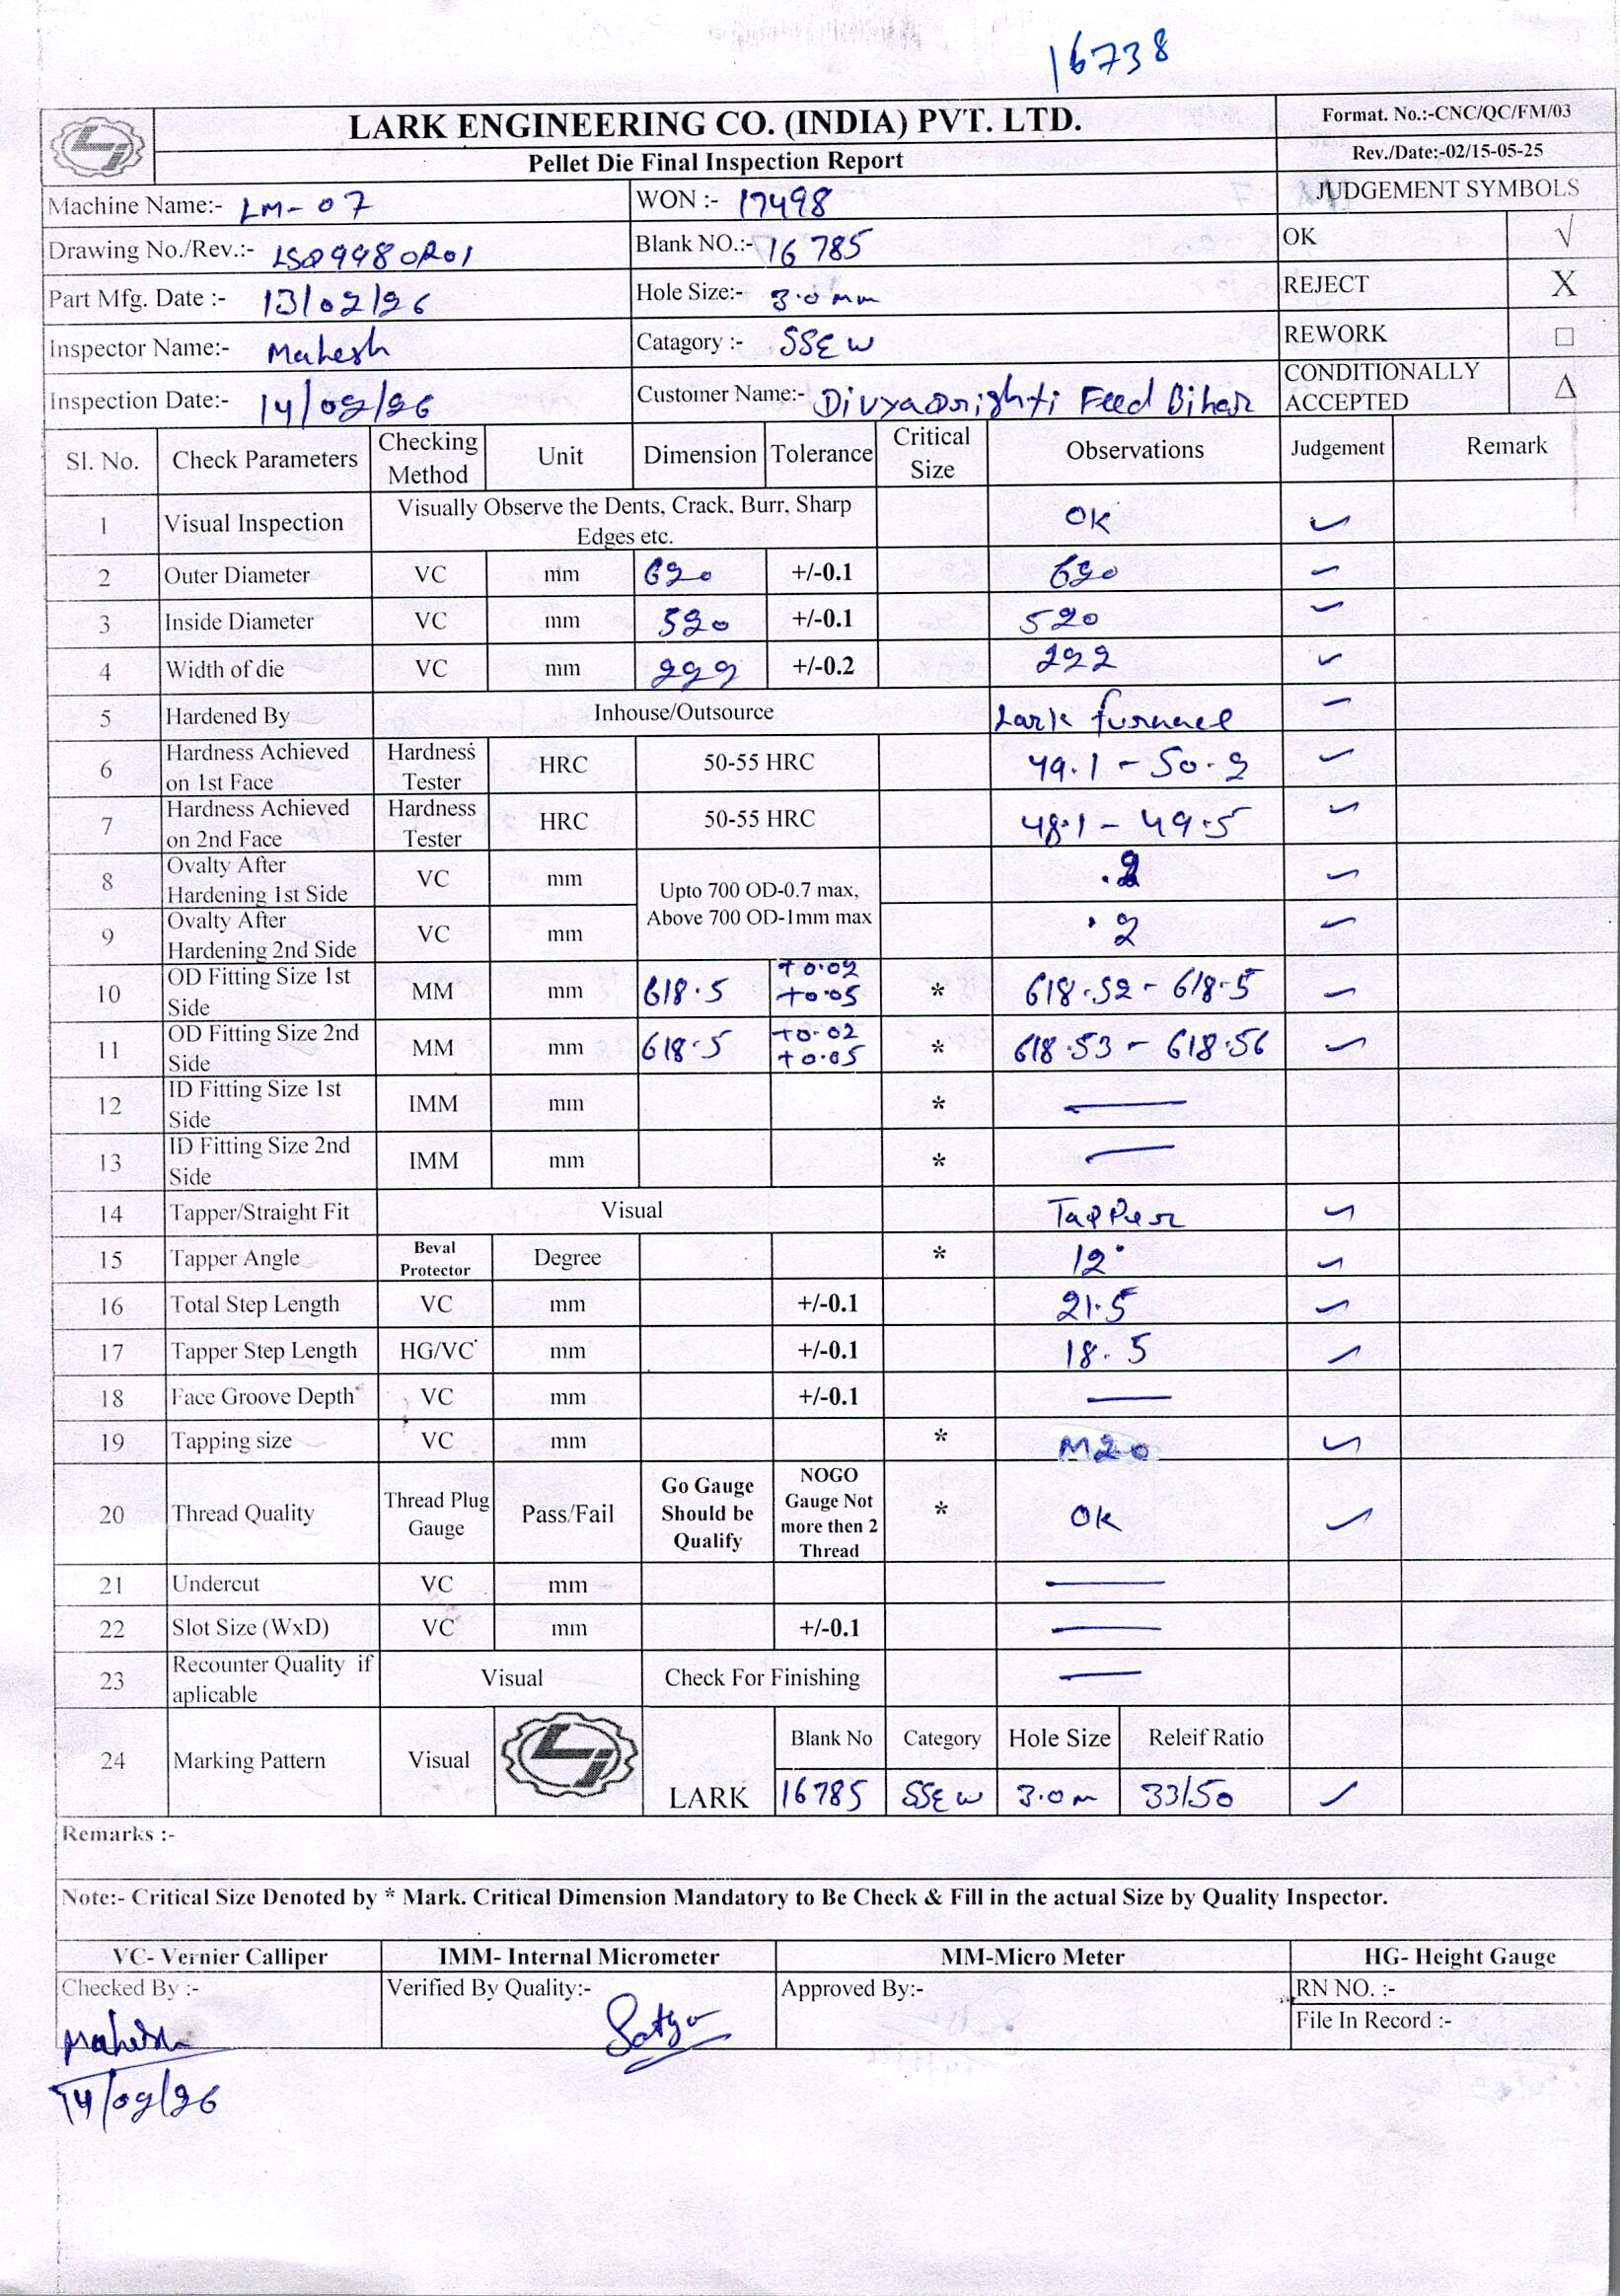 16738
LARK ENGINEERING CO. (INDIA) PVT. LTD.
Format. No.:-CNC/QC/FM/03
Pellet Die Final Inspection Report
Rev./Date:-02/15-05-25
Machine Name:- LM-07 WON :- 17498 JUDGEMENT SYMBOLS
Drawing No./Rev.:- Blank NO.:- 16785 OK √
Part Mfg. Date :- 13/02/26 Hole Size:- 3.0 mm REJECT X
Inspector Name:- Mahesh Catagory :- SSEW REWORK □
Inspection Date:- 14/02/26 Customer Name:- Feed Bihar CONDITIONALLY ACCEPTED Δ
Sl. No. Check Parameters Checking Method Unit Dimension Tolerance Critical Size Observations Judgement Remark
1 Visual Inspection Visually Observe the Dents, Crack, Burr, Sharp Edges etc. OK ✓
2 Outer Diameter VC mm 620 +/-0.1 620 ✓
3 Inside Diameter VC mm 520 +/-0.1 520 ✓
4 Width of die VC mm 222 +/-0.2 222 ✓
5 Hardened By Inhouse/Outsource Lark furnace ✓
6 Hardness Achieved on 1st Face Hardness Tester HRC 50-55 HRC 49.1 - 50.2 ✓
7 Hardness Achieved on 2nd Face Hardness Tester HRC 50-55 HRC 48.1 - 49.5 ✓
8 Ovalty After Hardening 1st Side VC mm Upto 700 OD-0.7 max, Above 700 OD-1mm max .2 ✓
9 Ovalty After Hardening 2nd Side VC mm .2 ✓
10 OD Fitting Size 1st Side MM mm 618.5 +0.02 +0.05 * 618.52 - 618.5 ✓
11 OD Fitting Size 2nd Side MM mm 618.5 +0.02 +0.05 * 618.53 - 618.56 ✓
12 ID Fitting Size 1st Side IMM mm * —
13 ID Fitting Size 2nd Side IMM mm * —
14 Tapper/Straight Fit Visual Tapper ✓
15 Tapper Angle Beval Protector Degree * 12° ✓
16 Total Step Length VC mm +/-0.1 21.5 ✓
17 Tapper Step Length HG/VC mm +/-0.1 18.5 ✓
18 Face Groove Depth VC mm +/-0.1 —
19 Tapping size VC mm * M20 ✓
20 Thread Quality Thread Plug Gauge Pass/Fail Go Gauge Should be Qualify NOGO Gauge Not more then 2 Thread * OK ✓
21 Undercut VC mm —
22 Slot Size (WxD) VC mm +/-0.1 —
23 Recounter Quality if aplicable Visual Check For Finishing —
24 Marking Pattern Visual LARK Blank No Category Hole Size Releif Ratio
16785 SSEW 3.0 m 33/50 ✓
Remarks :-
Note:- Critical Size Denoted by * Mark. Critical Dimension Mandatory to Be Check & Fill in the actual Size by Quality Inspector.
VC- Vernier Calliper IMM- Internal Micrometer MM-Micro Meter HG- Height Gauge
Checked By :- Verified By Quality:- Approved By:- RN NO. :-
File In Record :-
Mahesh Satya
14/02/26